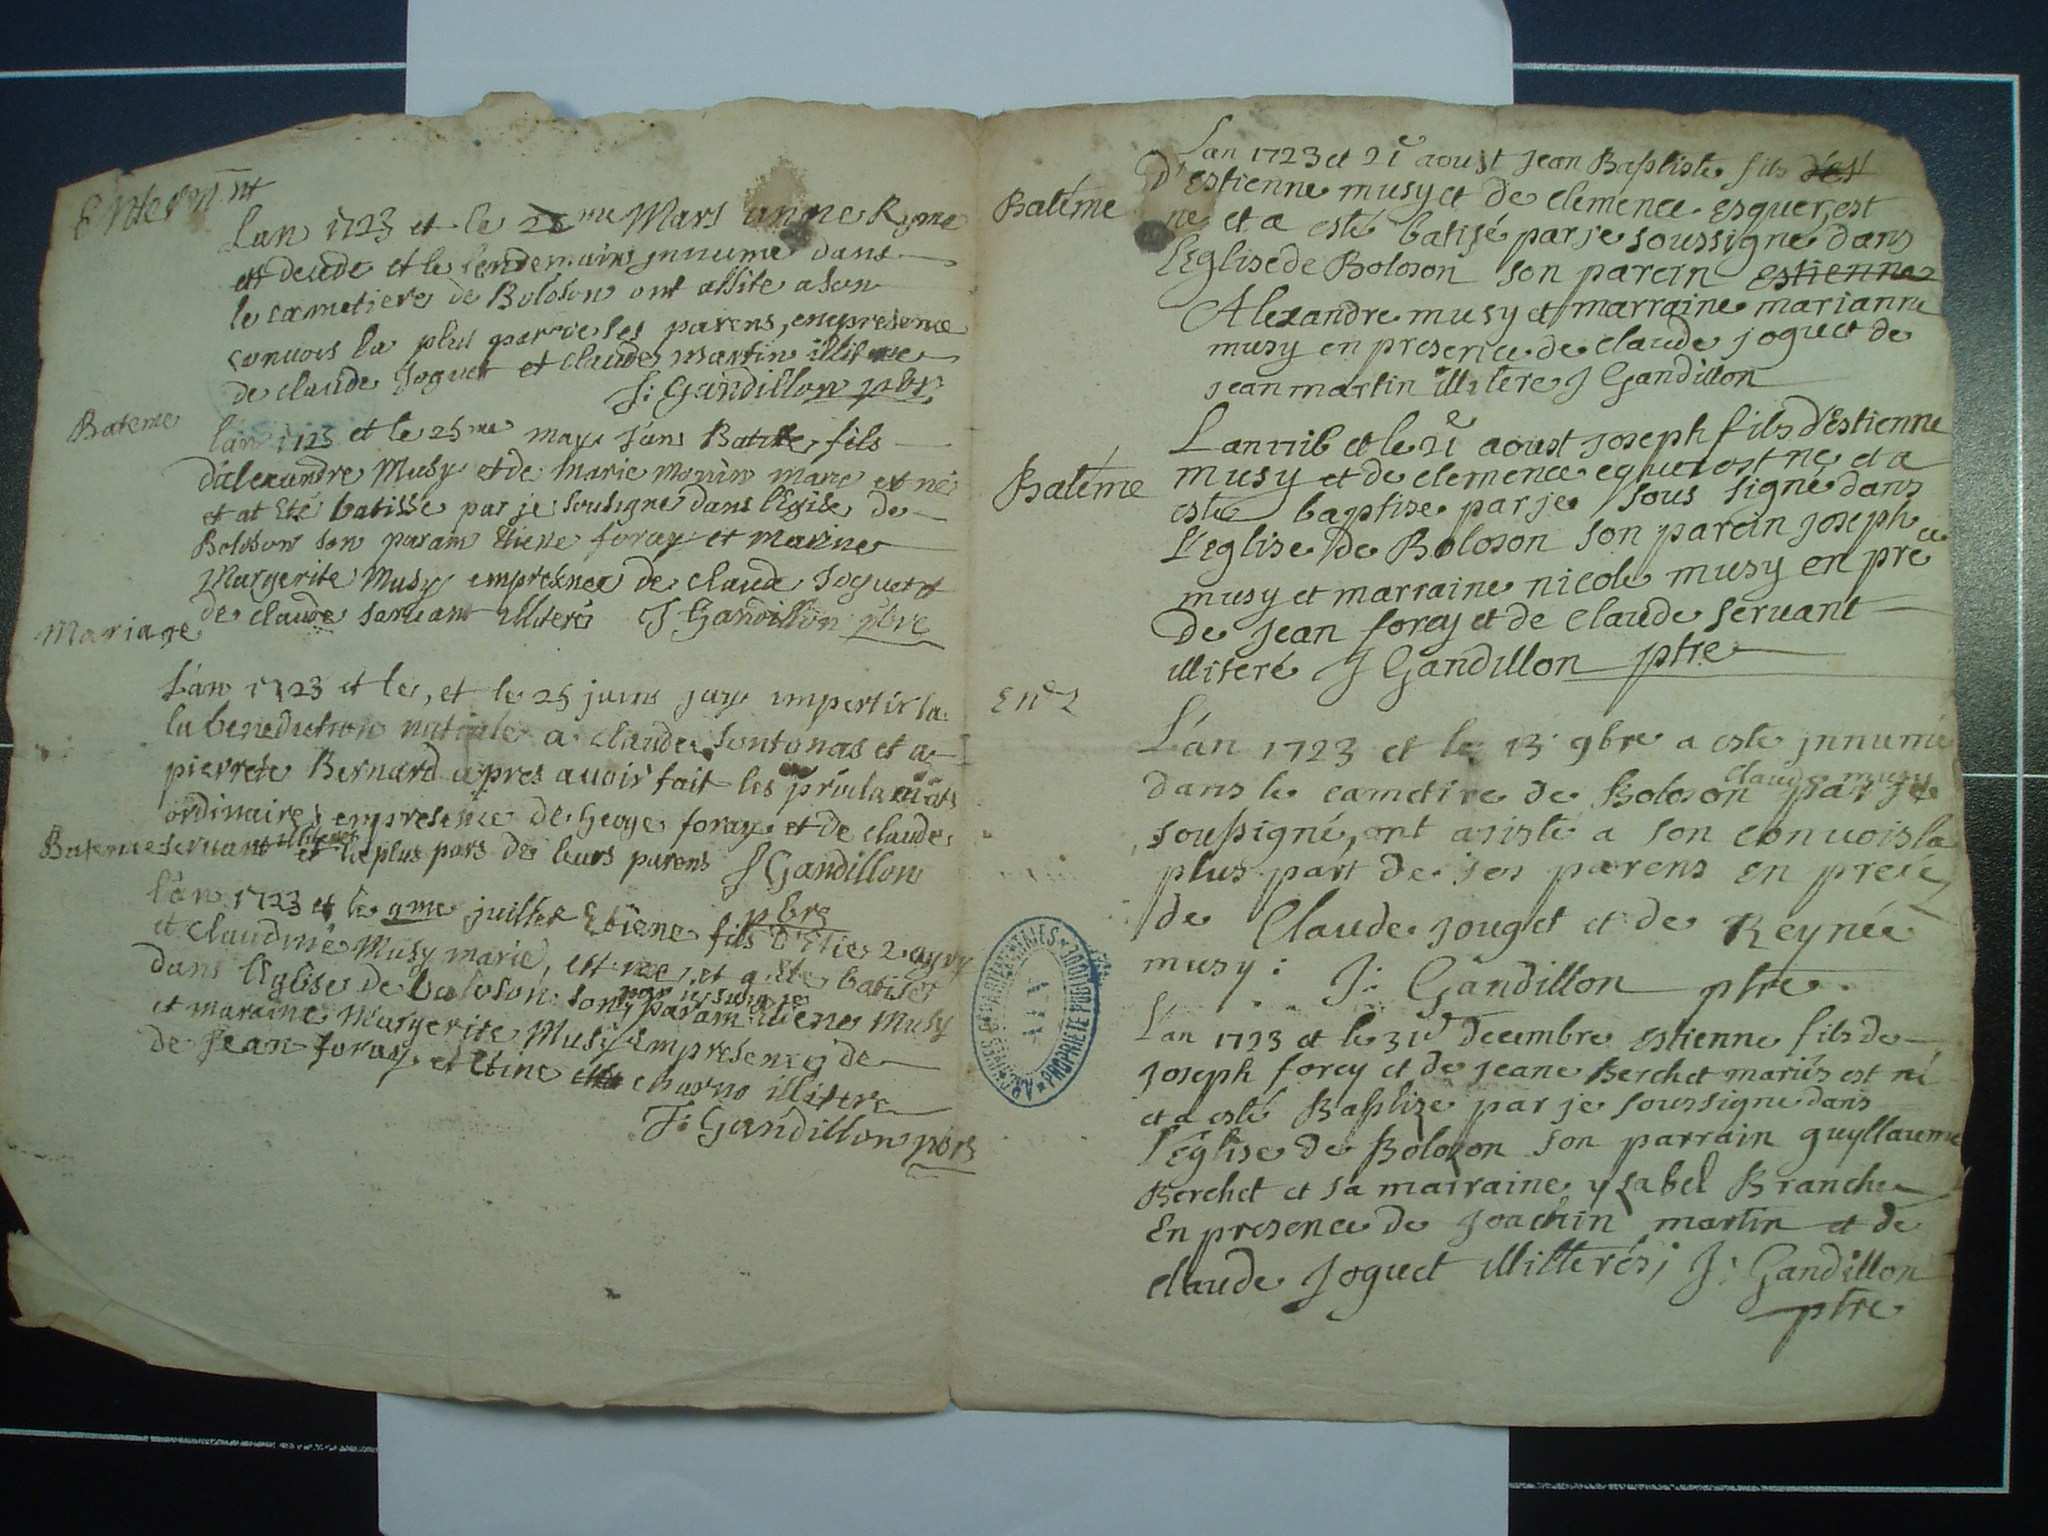 Enterm̄nt
Lan 1723 et le 2 me Mars anne Reyne
est decede et le lendemains jnnume dans
le cametiere de Boloson ont assite a son
convois la plus par de ses parens, en presence
de claude Joguet et claude martin illitere
J: Gandillon pbr
Bateme
lan 1723 et le 25me may Jans Batiste fils
d'alexandre Musy et de marie monin marie et né
et at eté batisse par je sousigne dans l'Eglise de
Boloson son param Etiene foray et marine
Margerite Musy empresence de claude Joguet et
de claude servant illiterés J Gandillon pbre
Mariage
L'an 1723 et le, et le 25 juins jay impertir la
la benediction nutiale a claude Sontonas et a
pierrete Bernard apres avoir fait les proclamats
ordinaires empresence de George foray et de claude
servant illiteres et la plus pars de leurs parens J Gandillon
pbre
Bateme
l'an 1723 et le 9me juillet Etiene fils d'Etie
et claudine Musy marie, est nee, et a ete batises
dans l'Eglise de boloson par je sousigne son param Etiene Musy
et maraine Margerite Musy empresence de
de Jean foray et Etine charno illitere
J: Gandillon pbre
Batéme
Lan 1723 et 21e aoust jean Baptiste fils d'est
d'Estienne musy et de clemence esquer, est
ne et a esté batisé par je soussigne dans
l'Eglise de Boloson son parein estienne
Alexandre musy et marraine marianne
musy en presence de claude joguet de
jean martin illitere J Gandillon
Batéme
Lan 17ib et le 21e aoust joseph fils d'Estienne
musy et de clemence equer est né et a
esté baptise par je sous signé dans
l'Eglise de Boloson son parein joseph
musy et marraine nicole musy en prece
de jean forey et de claude servant
illiteré J Gandillon ptre
L'an 1723 et le 13 9bre a esté jnnumé
dans le cametire de Boloson claude musy par je
soussigné, ont asisté a son convois la
plus part de ses parens en prece
de Claude jouget et de Reynée
musy: J: Gandillon ptre
L'an 1723 et le 31d decembre estienne fils de
joseph forey et de jeane Berchet mariés est né
et a esté Baptize par je soussigne dans
l'Église de Bolozon son parrain guyllaume
Berchet et sa marraine ysabel Branche
En presence de joachin martin et de
claude joguet illitterés; J: Gandillon
ptre
ARCHIVES DEPARTEMENTALES
PROPRIETE PUBLIQUE
AIN